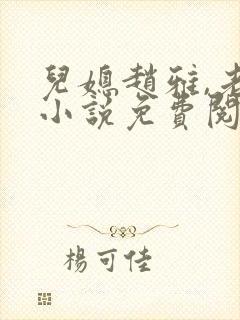 兒媳趙雅,老
小說免費閱
楊可佳